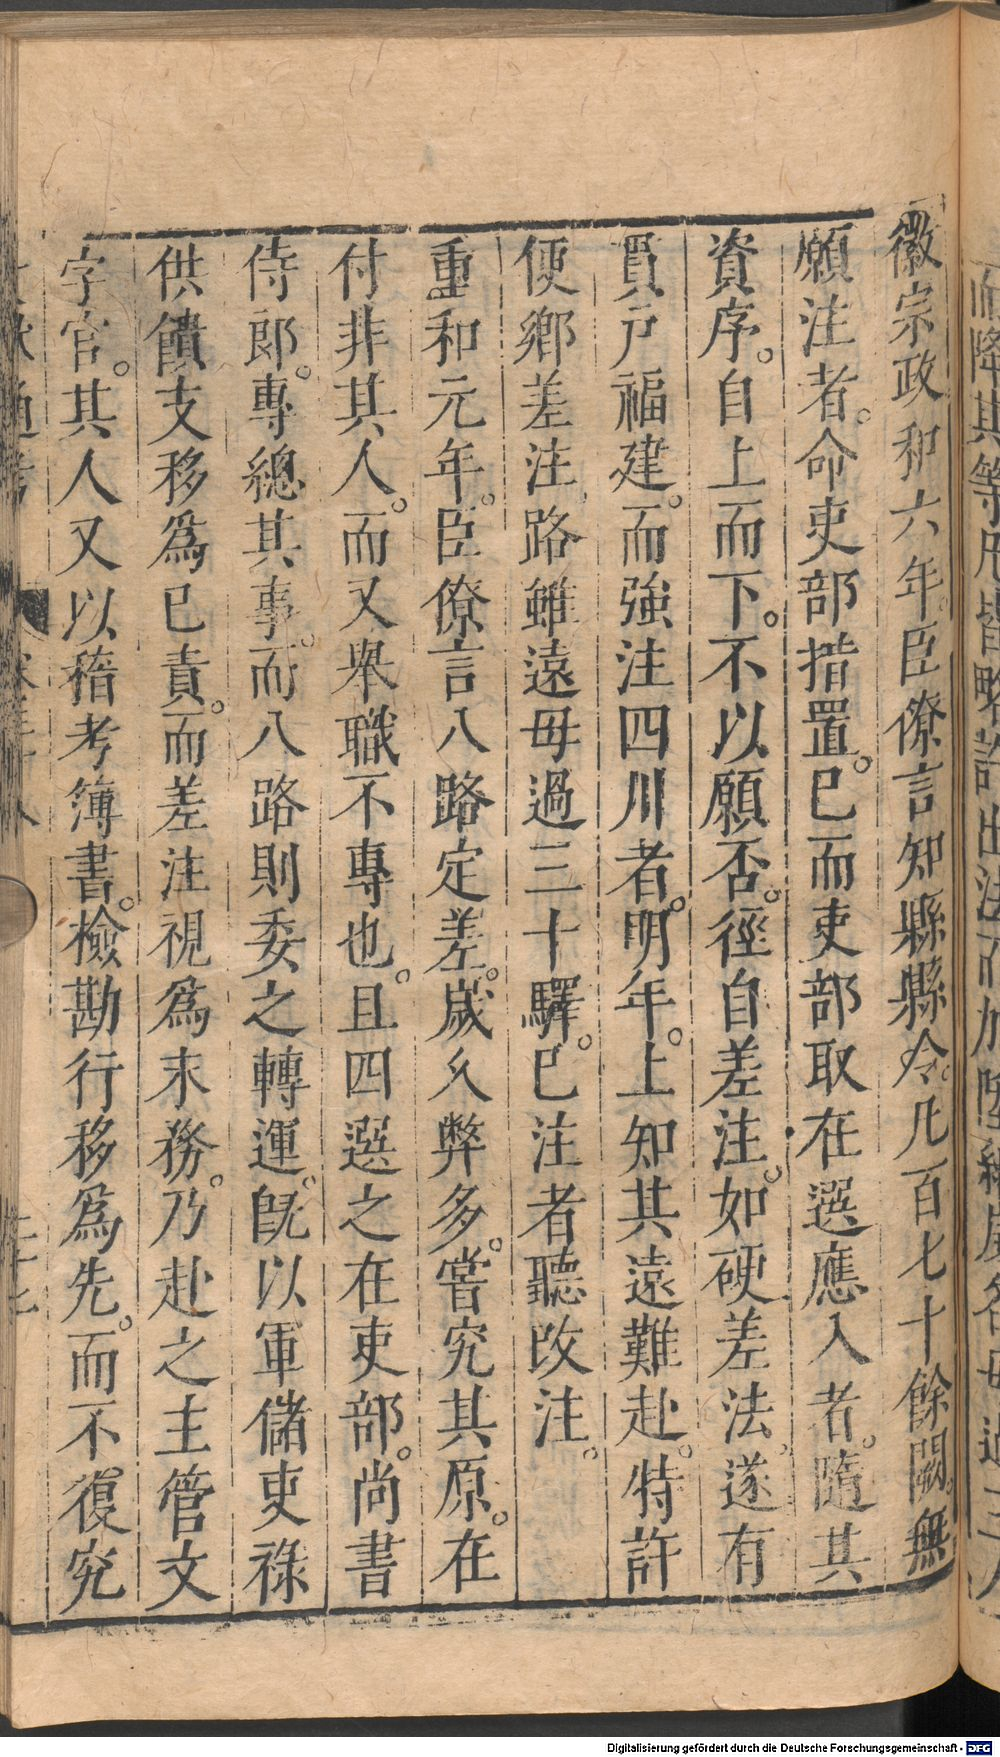 徽宗政和六年。臣僚言知縣縣令。凡百七十餘闕。無
願注者。命吏部措置。已而吏部取在選應入者。隨其
資序。自上而下。不以願否。徑自差注。如硬差法。遂有
貫戶福建。而強注四川者。明年。上知其遠難赴。特許
便鄉差注。路雖遠毋過三十驛。已注者聽改注。
重和元年。臣僚言八路定差。歲久弊多。嘗究其原。在
付非其人。而又舉職不專也。且四選之在吏部。尚書
侍郎。專總其事。而八路則委之轉運。旣以軍儲吏祿
供饋支移爲已責。而差注視爲末務。乃赴之主管文
字官。其人又以稽考簿書。檢勘行移爲先。而不復究
Digitalisierung gefördert durch die Deutsche Forschungsgemeinschaft - DFG